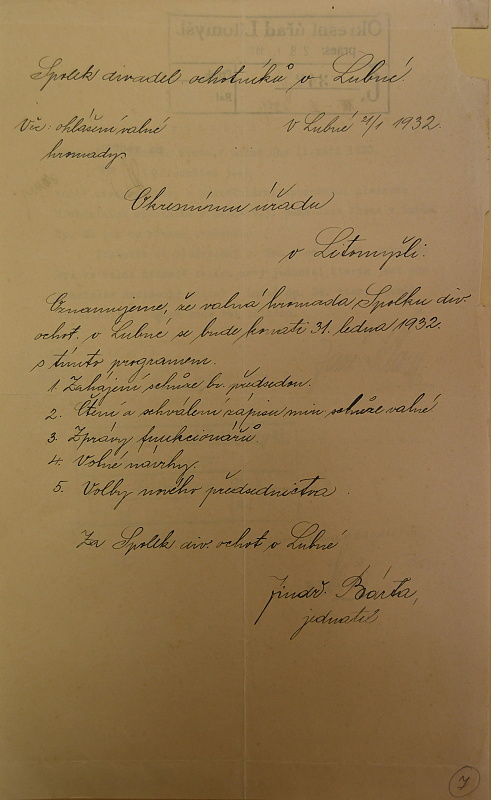 Spolek divadel. ochotníků v Lubné
Věc: ohlášení valné
hromady.
V Lubné 21/1 1932.
Okresnímu úřadu
v Litomyšli.
Oznamujeme, že valná hromada Spolku div.
ochot. v Lubné se bude konati 31. ledna 1932.
s tímto programem.
1. Zahájení schůze br. předsedou.
2. Čtení a schválení zápisu min. schůze valné
3. Zprávy funkcionářů.
4. Volné návrhy.
5. Volby nového předsednictva.
Za Spolek div. ochot v Lubné
Jindř. Bárta,
jednatel
7
Okresní úřad Litomyšl